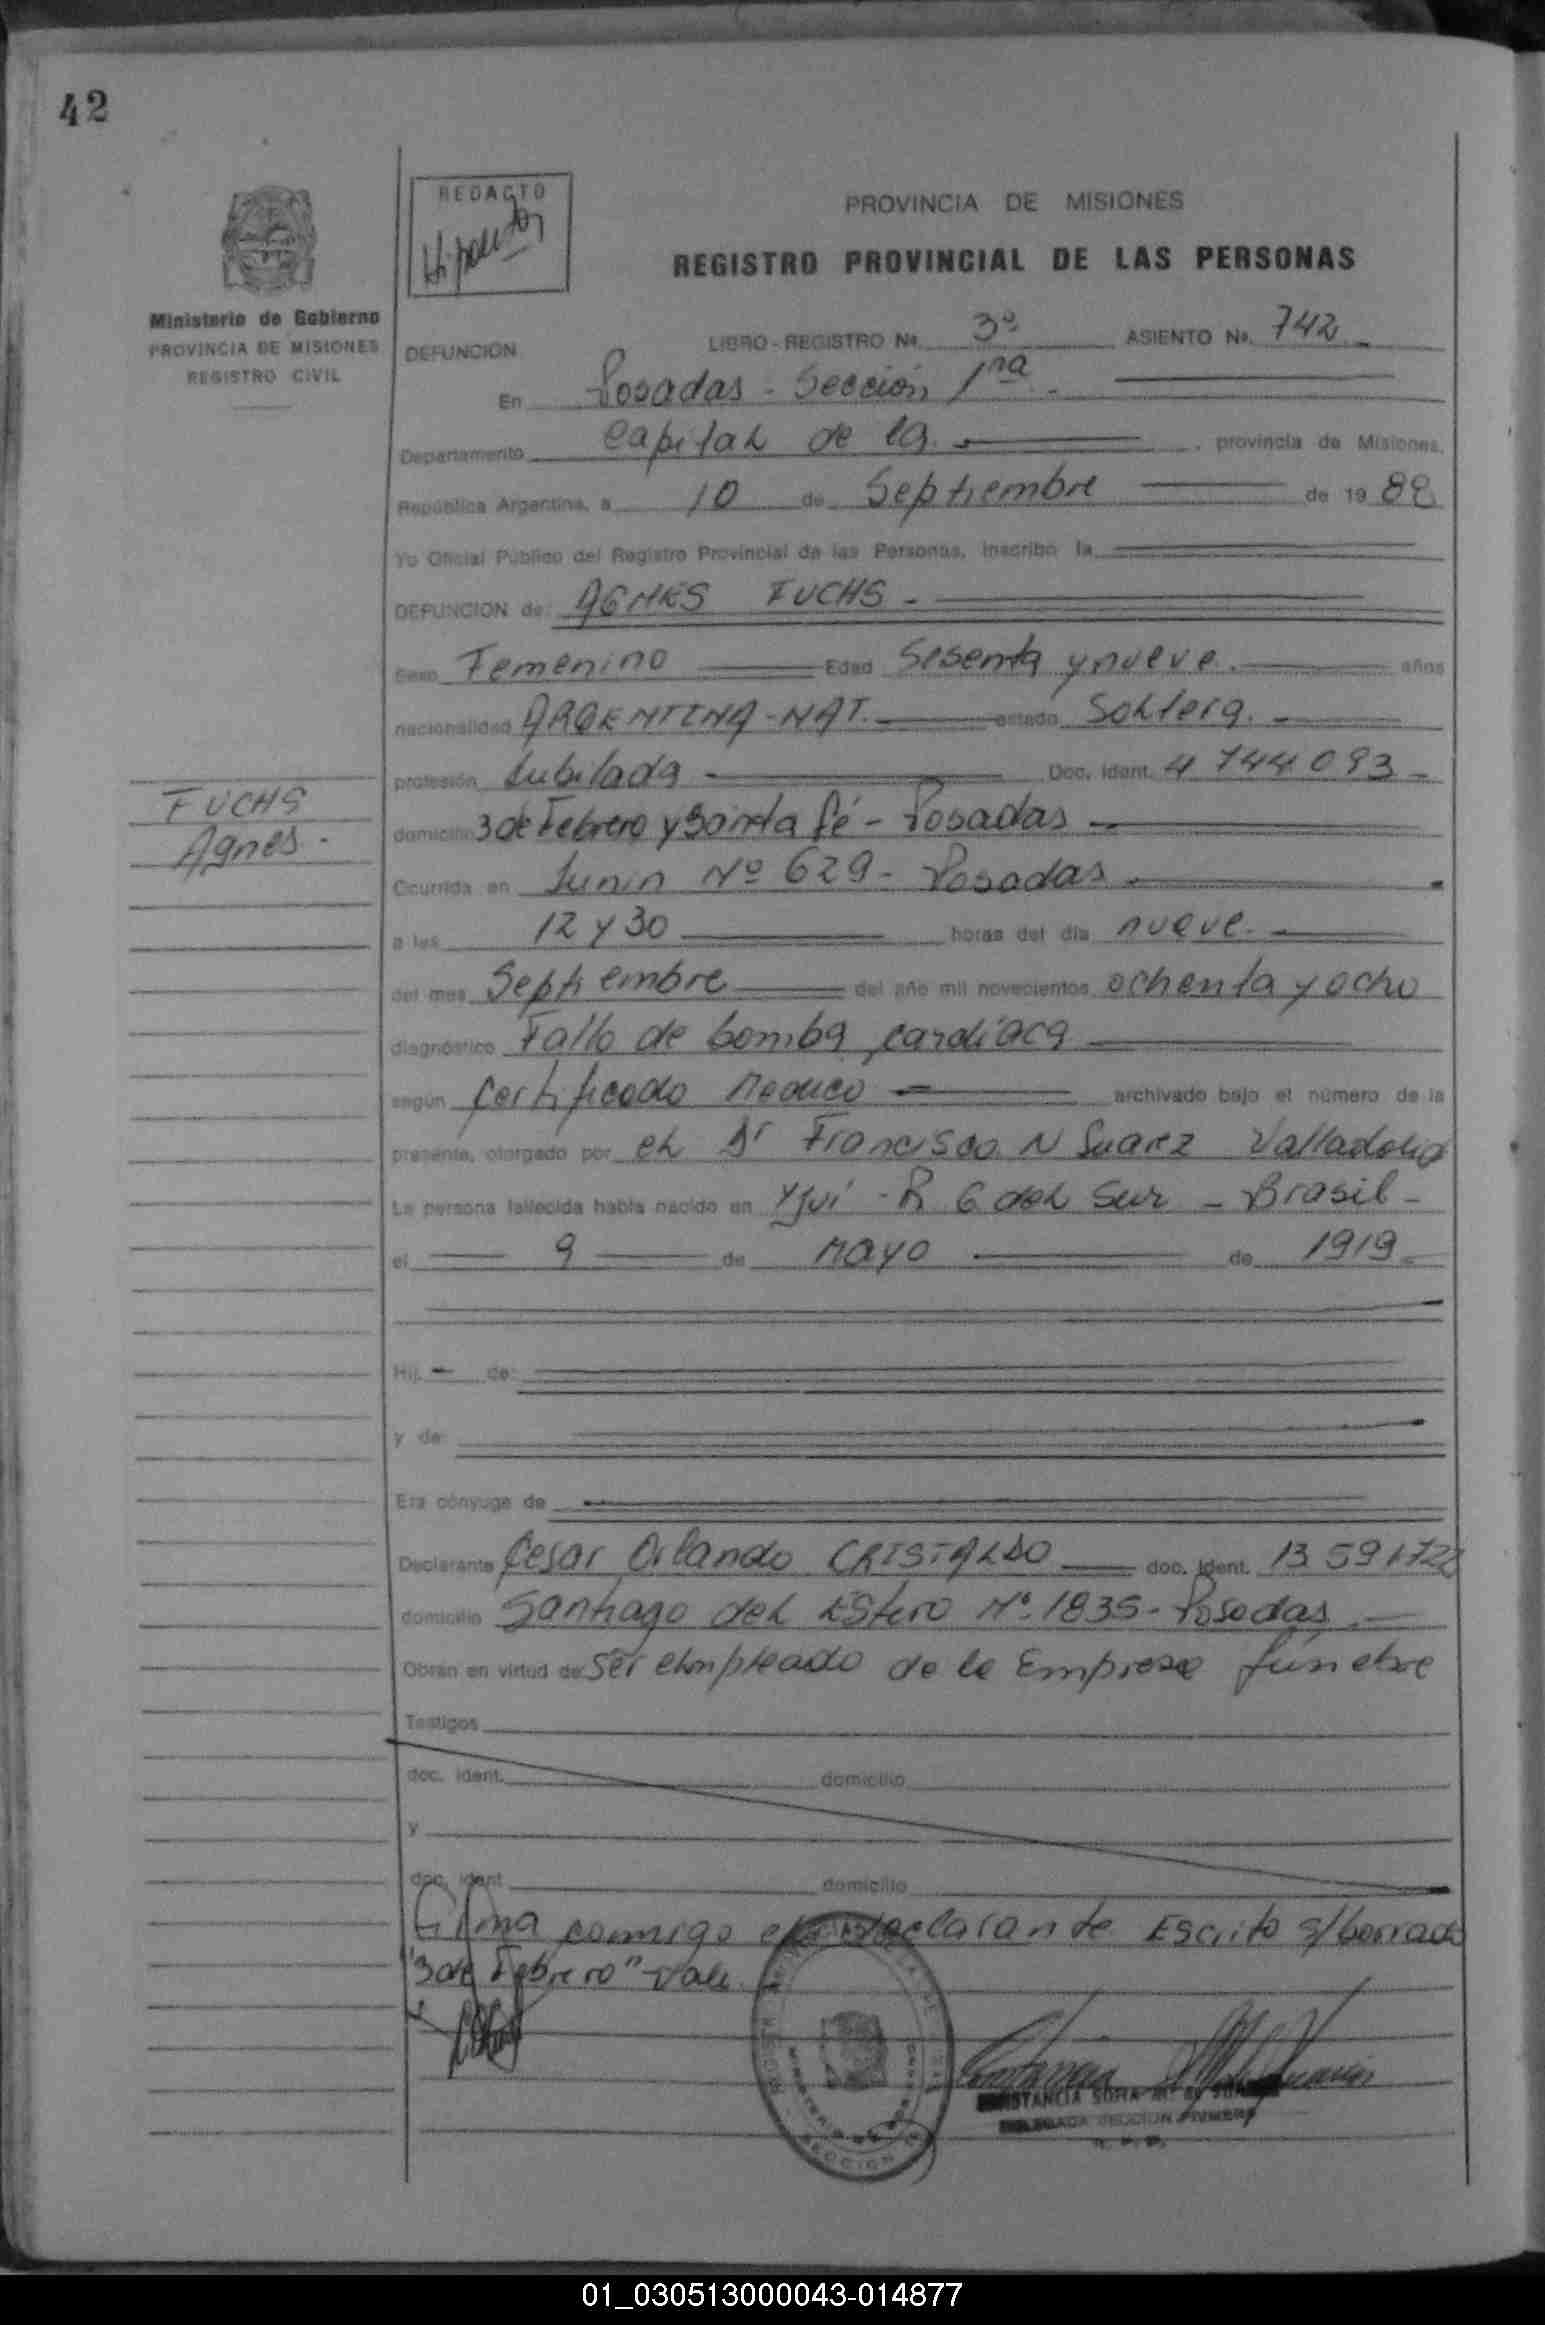 42
REDACTO
PROVINCIA DE MISIONES
REGISTRO PROVINCIAL DE LAS PERSONAS
Ministerio de Gobierno
PROVINCIA DE MISIONES
REGISTRO CIVIL
DEFUNCION LIBRO - REGISTRO No. 3º ASIENTO No. 742
En Posadas - Sección 1ra -
Departamento Capital de la. , provincia de Misiones,
República Argentina, a 10 de Septiembre de 19 88
Yo Oficial Público del Registro Provincial de las Personas, inscribo la
DEFUNCION de: AGNES FUCHS -
Sexo Femenino Edad Sesenta y nueve. años
nacionalidad ARGENTINA - NAT. estado Soltera. -
profesión Jubilada - Doc. Ident. 4 744 093 -
FUCHS
Agnes -
domicilio 3 de Febrero y Santa fé - Posadas -
Ocurrida en Junin Nº 629 - Posadas -
a las 12 y 30 horas del día nueve. -
del mes Septiembre del año mil novecientos ochenta y ocho
diagnóstico Fallo de bomba cardíaca
según Certificado Medico - archivado bajo el número de la
presente, otorgado por el Dr Francisco N Suarez Valladolid
La persona fallecida había nacido en Yjuí - R G del Sur - Brasil -
el 9 de Mayo de 1919 -
Hij - de:
y de
Era cónyuge de
Declarante Cesar Orlando CRISTALDO doc. ident. 13 591 728
domicilio Santiago del Estero Nº 1835 - Posadas -
Obran en virtud de: Ser empleado de la Empresa fúnebre
Testigos
doc. ident. domicilio
y
doc. ident. domicilio
Firma conmigo el declarante Escrito s/borrado
"3 de Febrero" Vale.
SECCION
DELEGADA SECCION PRIMERA
01_030513000043-014877